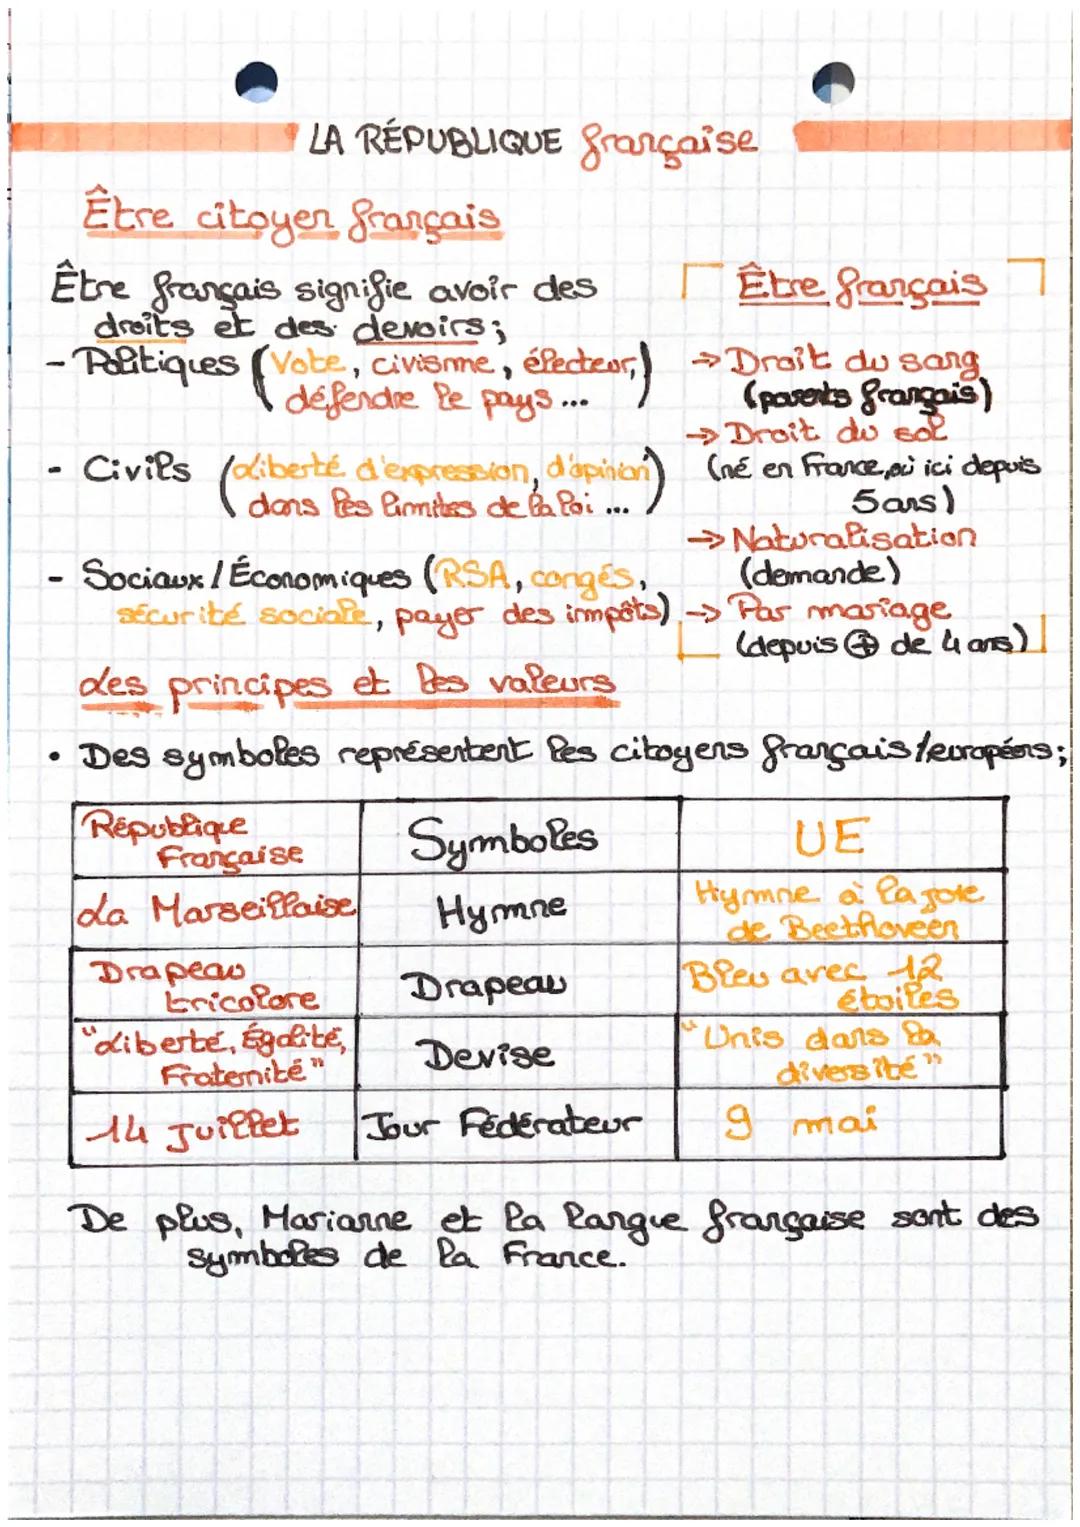 LA RÉPUBLIQUE française
Être citoyen français
Être français signifie avoir des
droits et des devoirs;
- Politiques (Vote, civisme, électeur,)
défendre le pays...
- Civils (Liberté d'expression, d'opinion)
dans les limites de la loi ...
- Sociaux / Économiques (RSA, congés,
sécurité sociale, payer des impôts)
Être français
→ Droit du sang
(parents français)
→ Droit du sol
(né en France, où ici depuis
5 ans)
→ Naturalisation
(demande)
→ Par mariage
(depuis ⊕ de 4 ans)
Les principes et les valeurs
• Des symboles représentent les citoyens français/européens;
République
Française
Symboles
UE
La Marseillaise
Hymne
Hymne à la joie
de Beethoveen
Drapeau
tricolore
Drapeau
Bleu avec 12
étoiles
"Liberté, Égalité,
Fraternité"
Devise
"Unis dans la
diversité"
14 Juillet
Jour Fédérateur
9 mai
De plus, Marianne et la langue française sont des
symboles de la France.